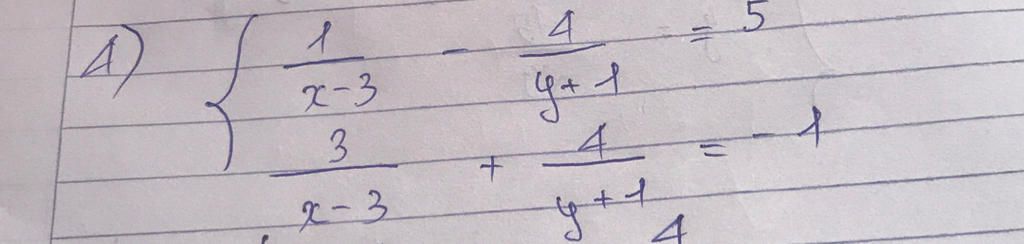 4) { 1/(x-3) - 4/(y+1) = 5
3/(x-3) + 4/(y+1) = -1
4